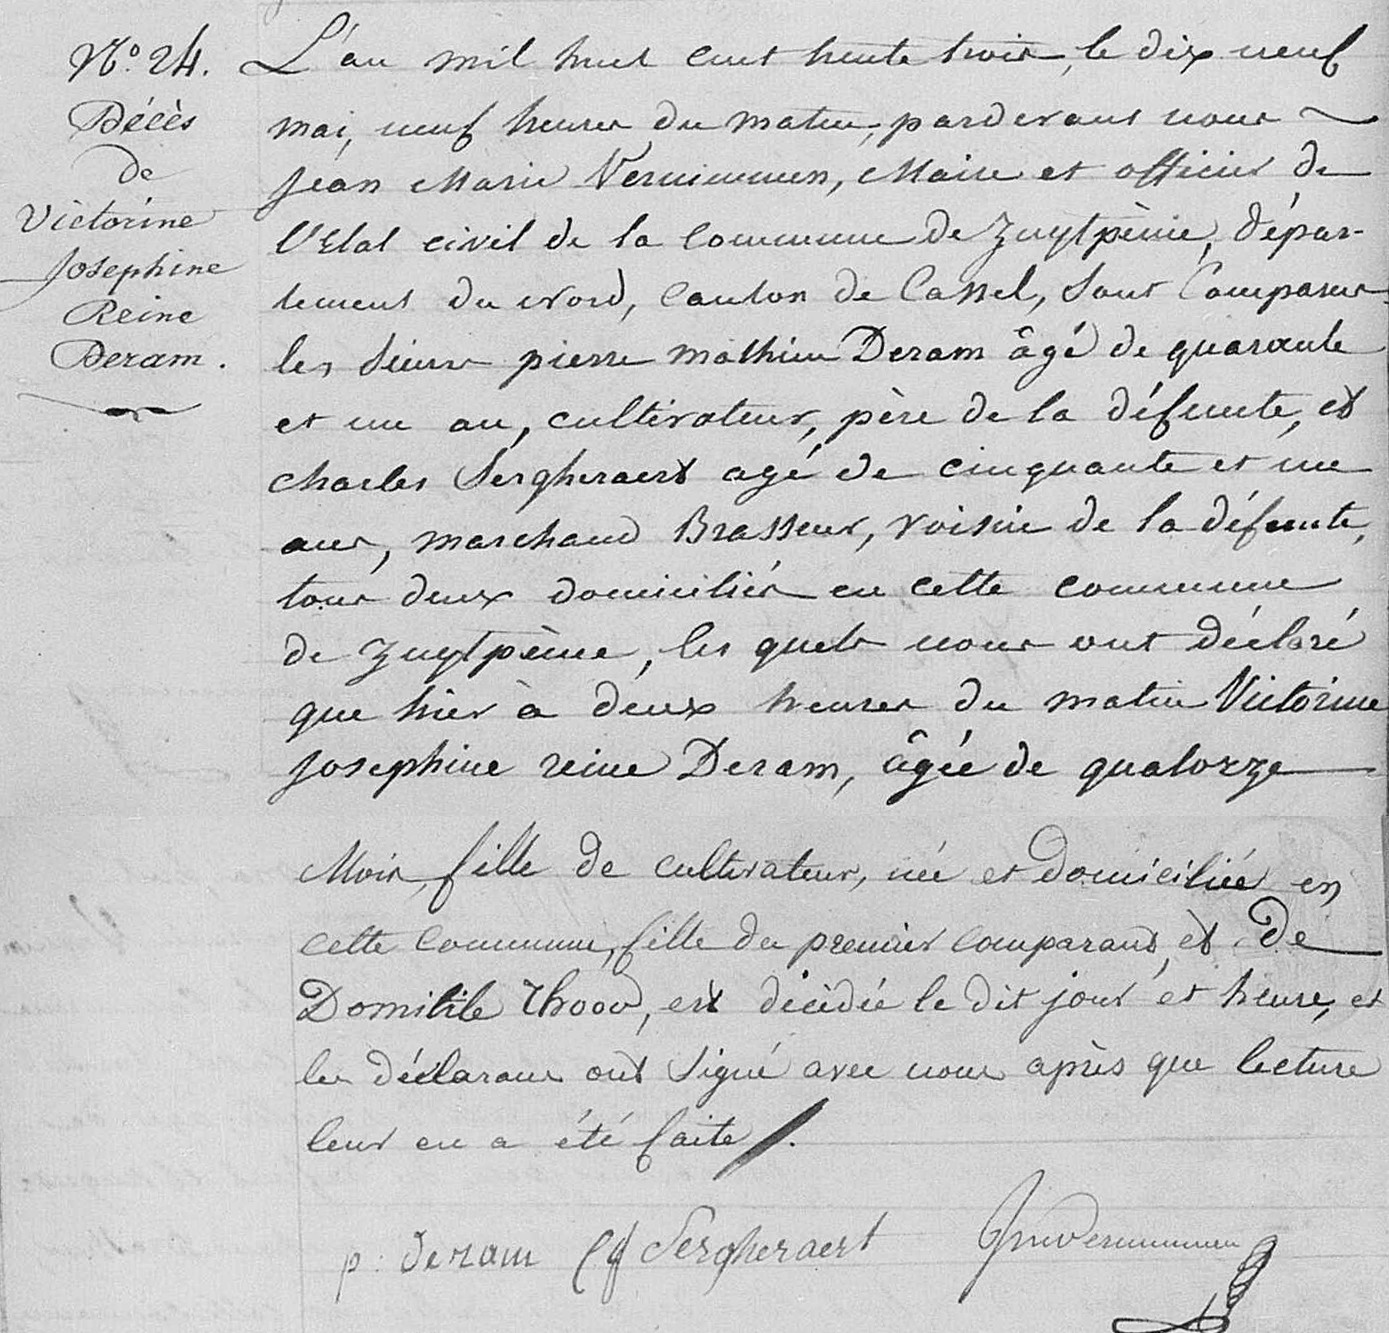 N.º 24.
Décès
de
Victorine
Josephine
Reine
Deram.
L'an mil huit cent trente trois, le dix neuf
mai, neuf heures du matin, pardevant nous
Jean Marie Vernimmen, Maire et officier de
l'Etat civil de la commune de Zuytpène, dépar-
tement du Nord, canton de Cassel, sont Comparus
les sieurs pierre mathieu Deram âgé de quarante
et un an, cultivateur, père de la défunte, et
charles Sergheraert agé de cinquante et un
ans, marchand Brasseur, voisin de la défunte,
tous deux domiciliés en cette commune
de Zuytpène, les quels nous ont déclaré
que hier à deux heures du matin Victorine
Josephine reine Deram, âgée de quatorze
Mois, fille de cultivateur, née et domiciliée en
cette commune, fille du premier comparant, et de
Domitile Thoor, est décédée le dit jour et heure, et
les déclarans ont signé avec nous après que lecture
leur en a été faite.
p. deram Ch Sergheraert Jm Vernimmen